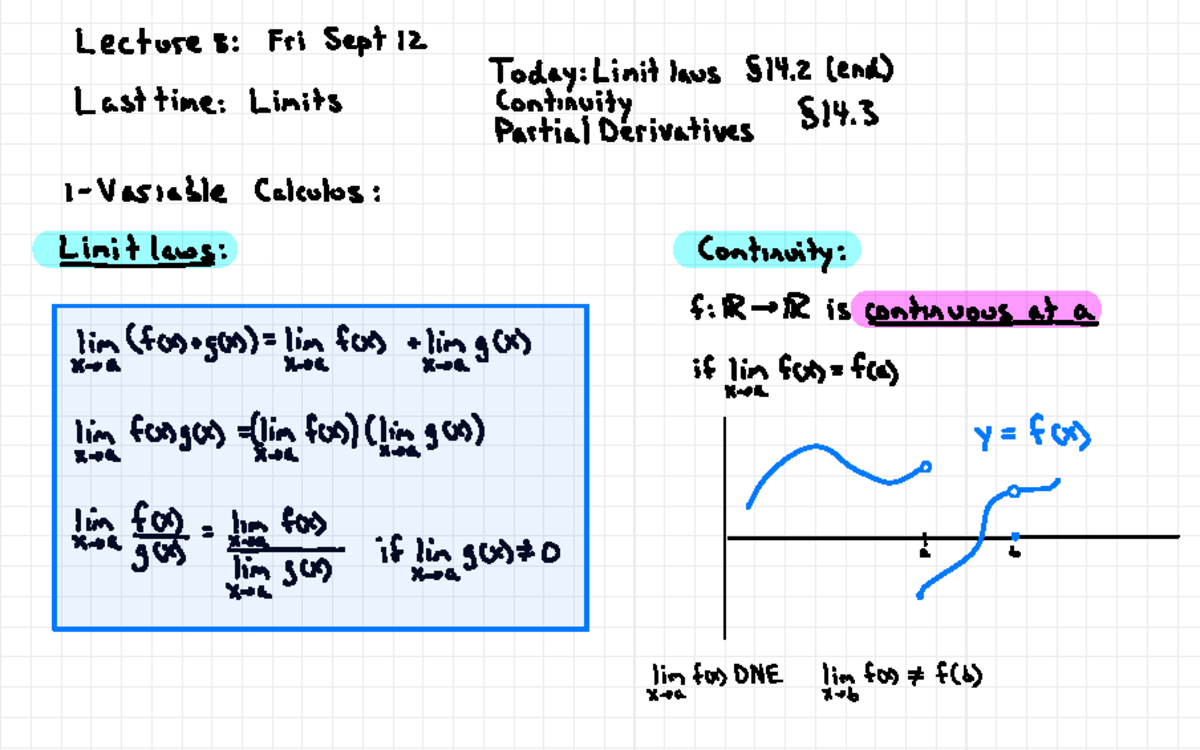 Lecture 5: Fri Sept 12
Last time: Limits
Today: Limit laws §14.2 (end)
Continuity
Partial Derivatives §14.3
1-Variable Calculus:
Limit laws:
lim x→a (f(x)+g(x)) = lim x→a f(x) + lim x→a g(x)
lim x→a f(x)g(x) = (lim x→a f(x)) (lim x→a g(x))
lim x→a f(x)/g(x) = lim x→a f(x) / lim x→a g(x) if lim x→a g(x) ≠ 0
Continuity:
f: ℝ→ℝ is continuous at a
if lim x→a f(x) = f(a)
y = f(x)
a b
lim x→a f(x) DNE lim x→b f(x) ≠ f(b)